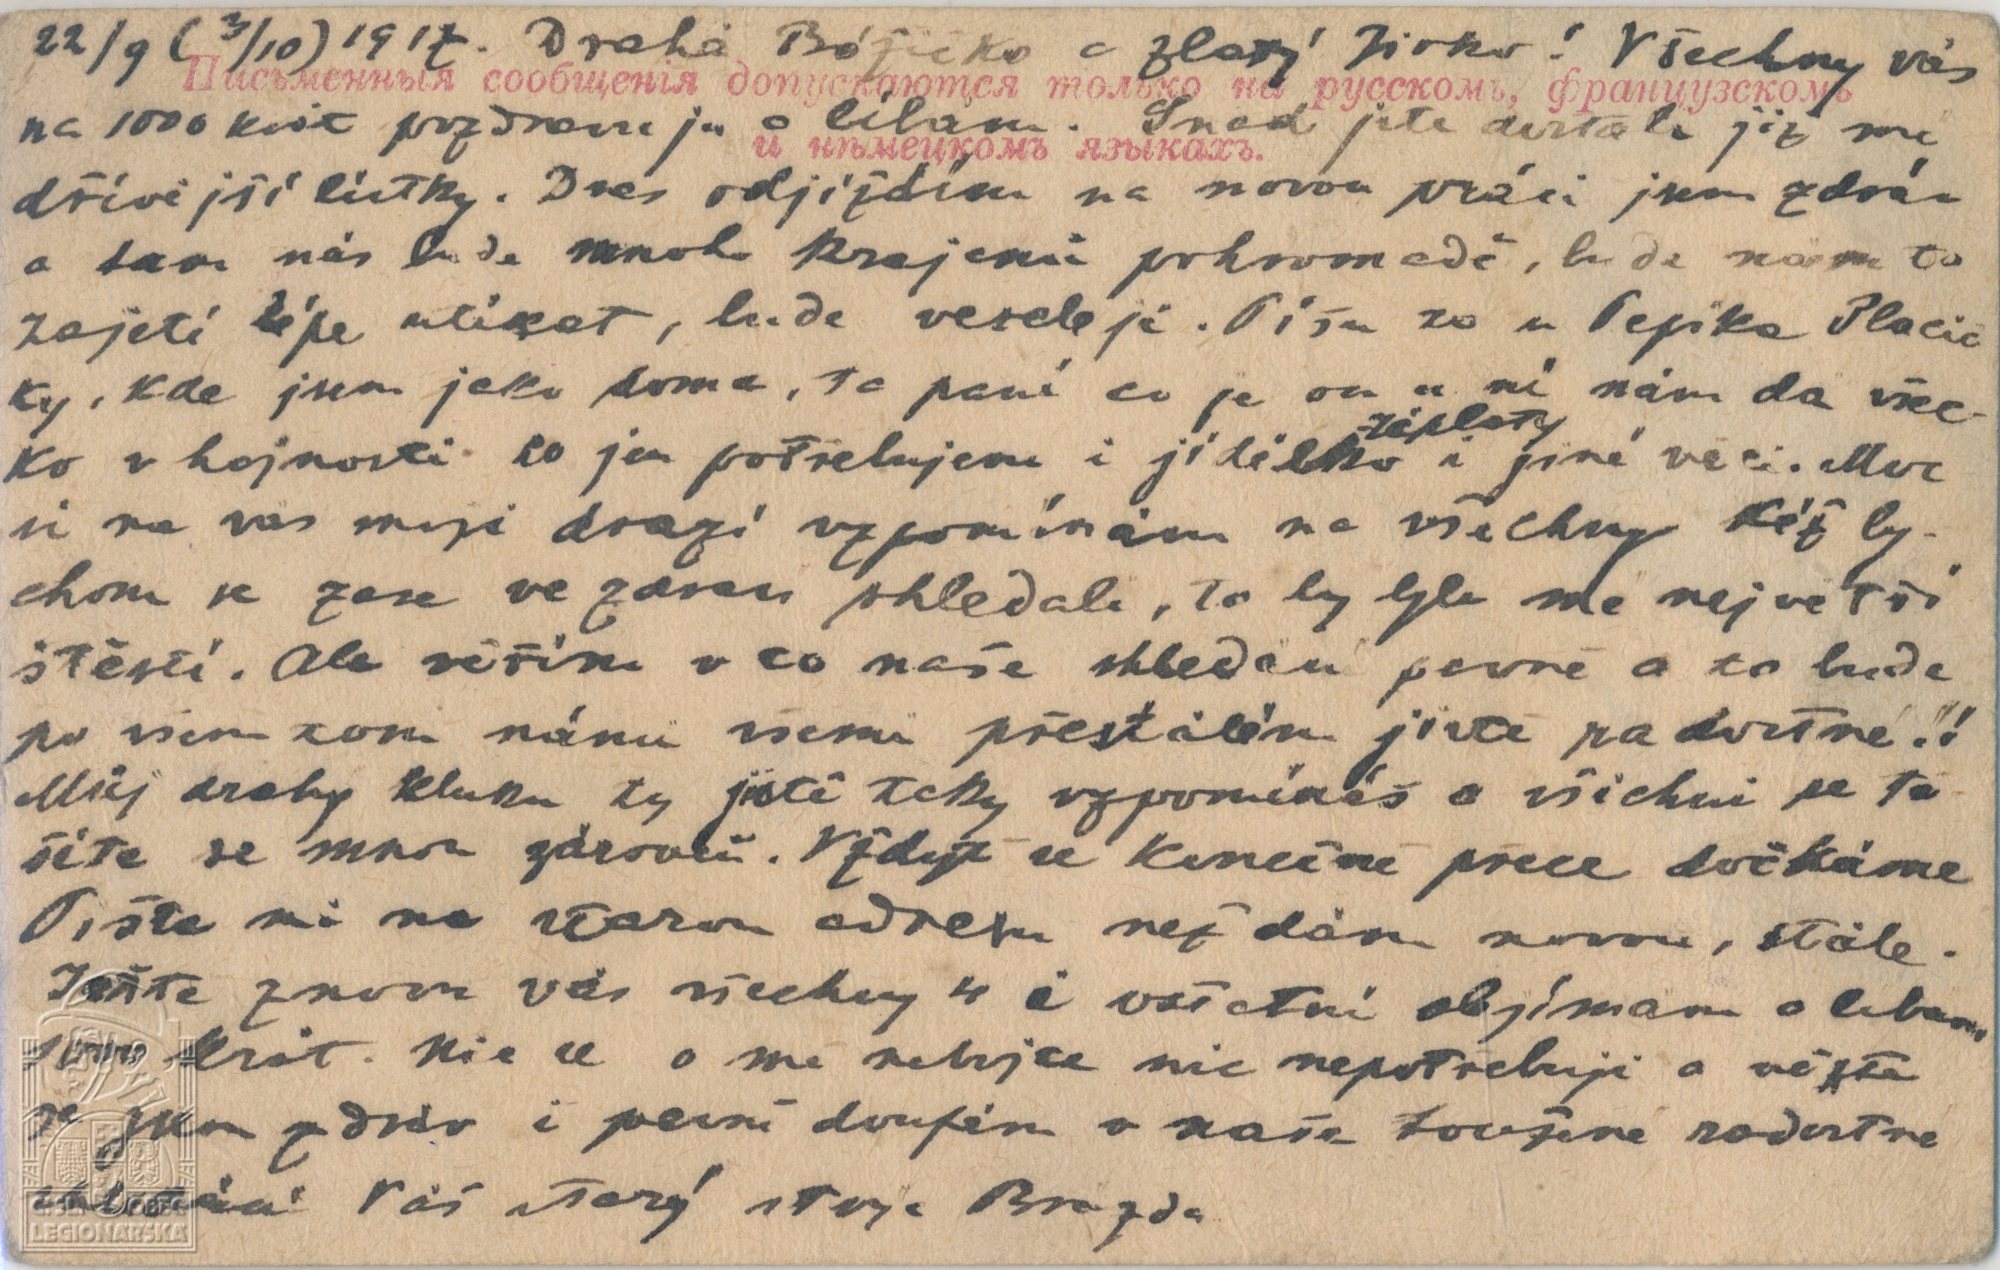 22/9 (3/10) 1917. Drahá Božičko a zlatý Jirko! Všechny vás
Письменныя сообщенія допускаются только на русскомъ, французскомъ
na 1000 krát pozdravuju a líbám. Snad jste dostali již mé
и нѣмецкомъ языкахъ.
dřívější lístky. Dnes odjíždím na novou práci jsem zdráv
a tam nás bude mnoho krajanů pohromadě, bude nám to
zajetí lépe utíkat, bude veseleji. Píšu to u Pepíka Placič
ky, kde jsem jako doma, ta paní co je on u ní nám dá všec-
ko v hojnosti co jen potřebujem i jídélko záplaty i jiné věci. Moc
si na vás moji drazí vzpomínám na všechny kéž by-
chom se zase ve zdraví shledali, to by bylo mé největší
štěstí. Ale věřím v to naše shledání pevně a to bude
po všem tom námi všemi přestálém jistě radostné!!
Můj drahý kluku ty jistě taky vzpomínáš a všichni se tě
šíte se mnou zároveň. Vždyť se konečně přece dočkáme
Pište mi na starou adresu než dám novou, stále.
Ještě znovu vás všechny 4 i ostatní objímám a líbám
krát. Nic se o mě nebojte nic nepotřebuji a věřte
že jsem zdráv i pevně doufám v naše toužené radostné
Váš starý strýc Brazda
ČSL. OBEC
LEGIONÁŘSKÁ